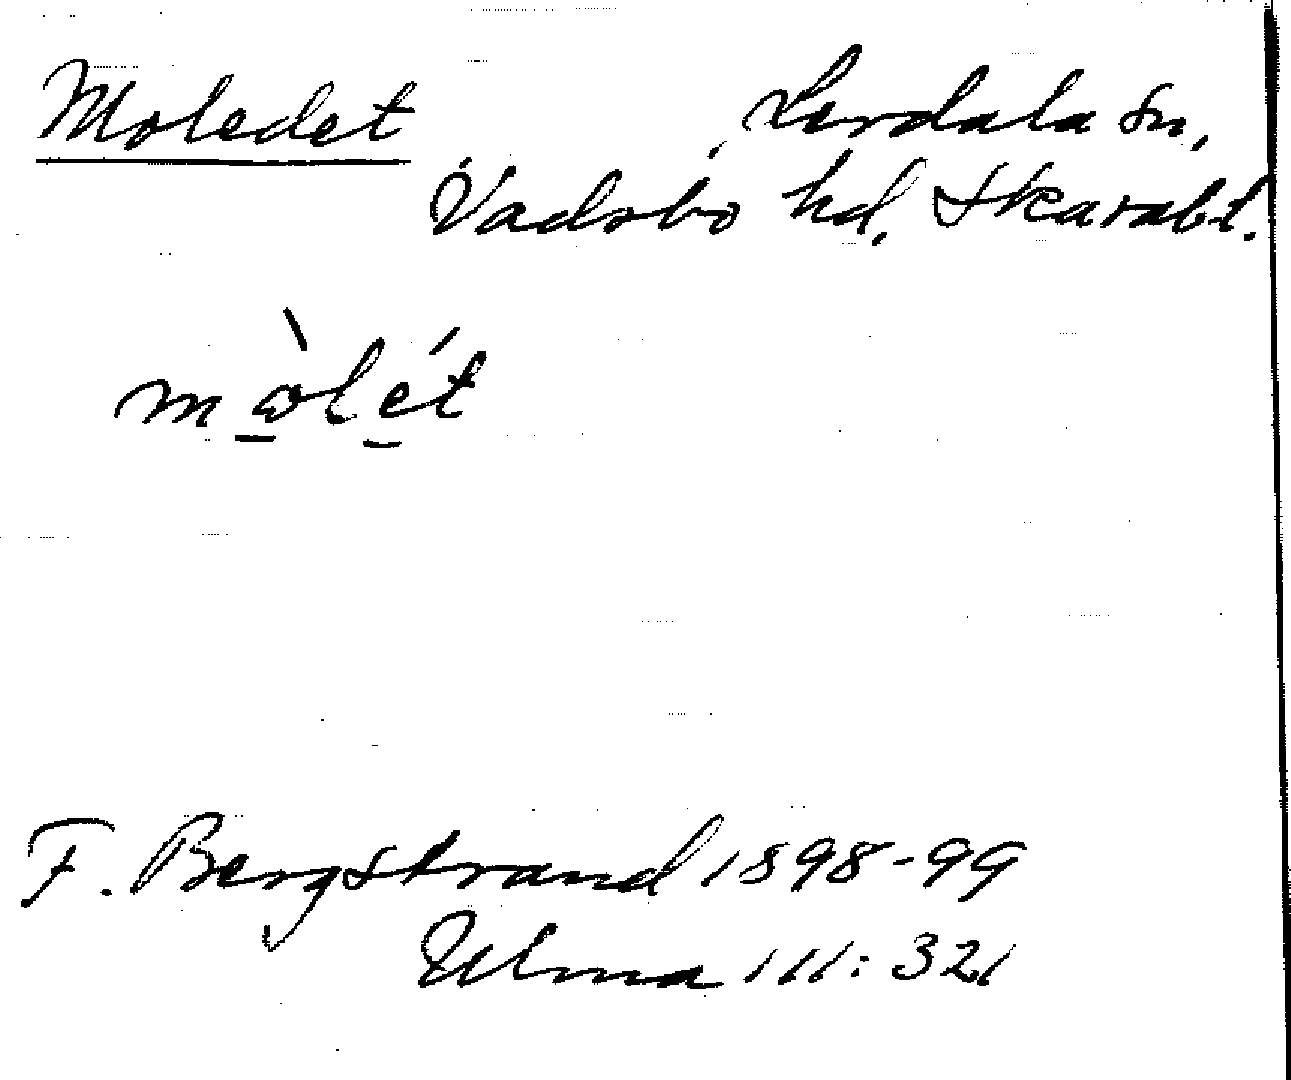 Moledet Lerdala sn,
Vadsbo hd, Skarabl.
mɷ̠̀lé̠t
F. Bergstrand 1898-99
Ulma 111: 321